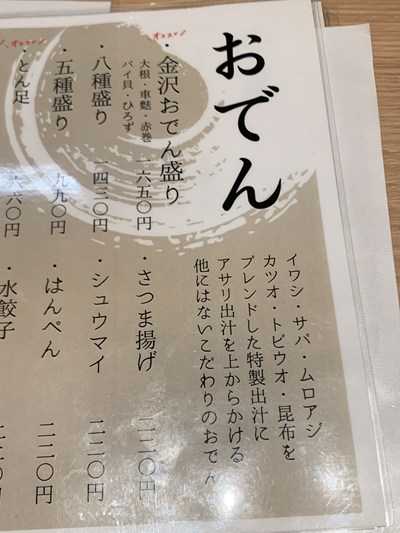 おでん
イワシ・サバ・ムロアジ
カツオ・トビウオ・昆布を
ブレンドした特製出汁に
アサリ出汁を上からかける
他にはないこだわりのおでん
オススメ
・金沢おでん盛り
大根・車麩・赤巻
バイ貝・ひろず
一六五〇円
・八種盛り
一四三〇円
オススメ
・五種盛り
九九〇円
・とん足
六六〇円
・さつま揚げ
二二〇円
・シュウマイ
二二〇円
・はんぺん
二二〇円
・水餃子
二二〇円